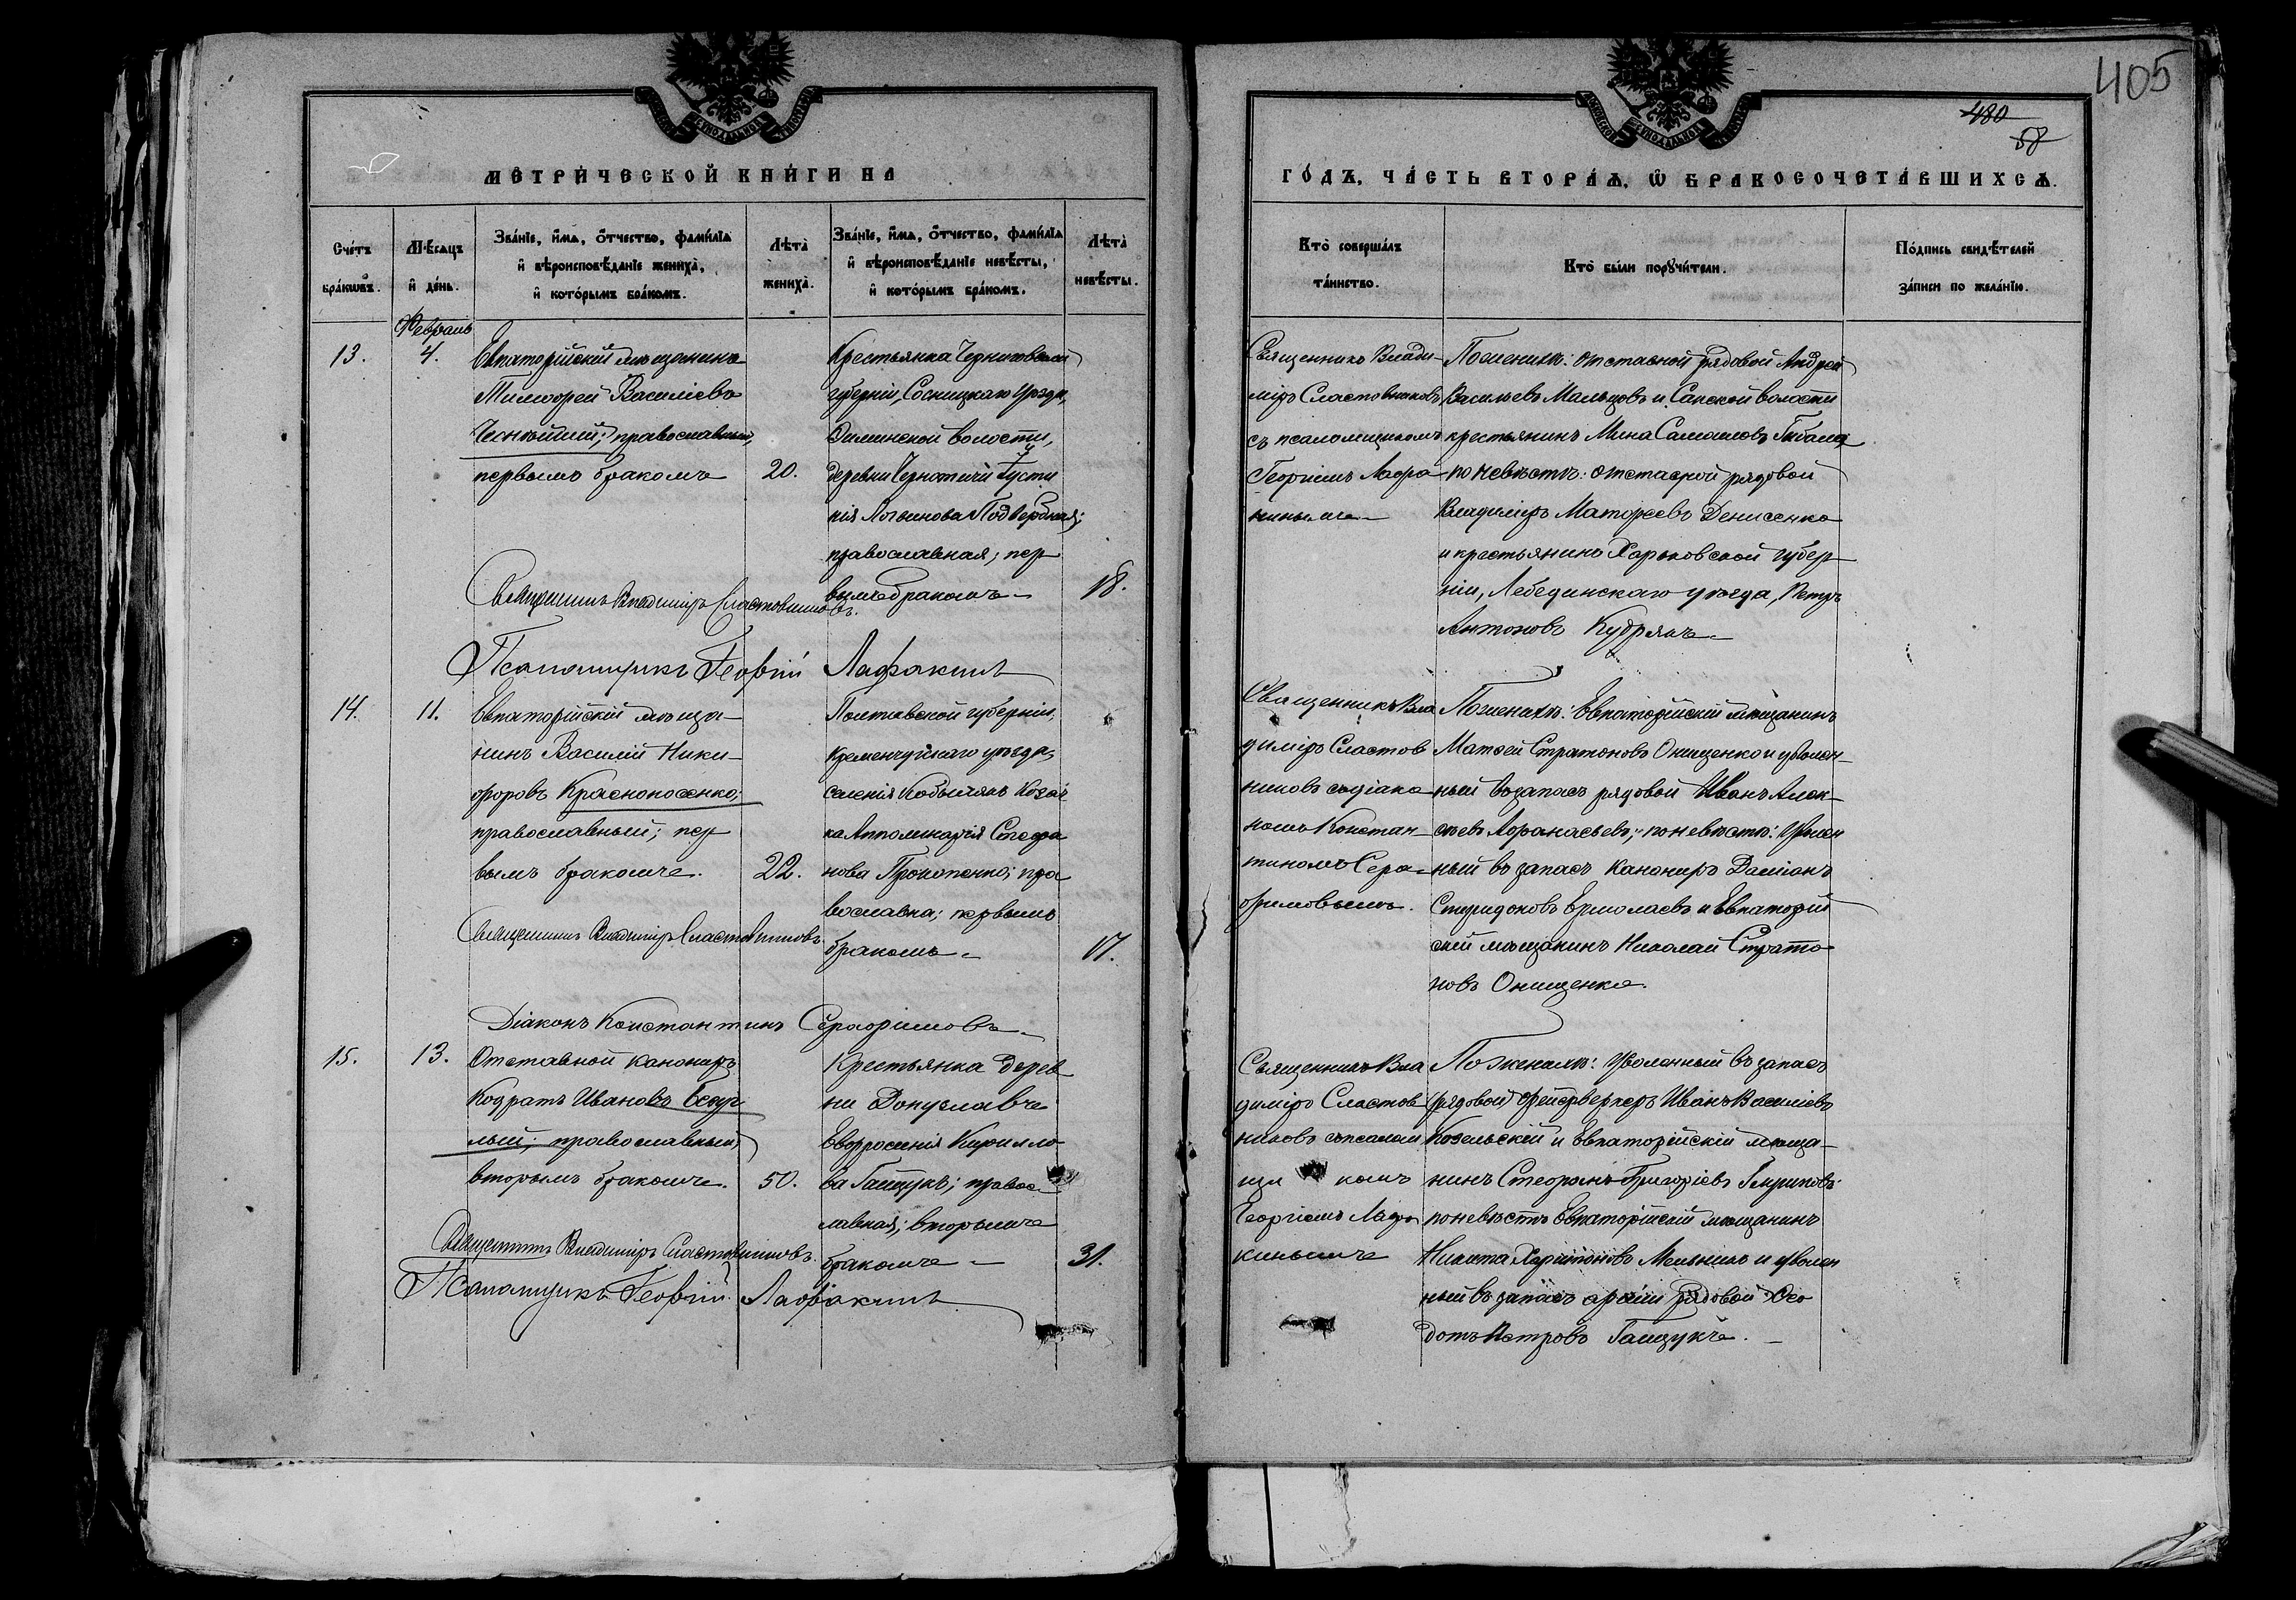 405
480
58
СѴНОДАЛЬНОЙ
СѴНОДАЛЬНОЙ
МЕТРИЧЕСКОЙ КНИГИ НА
ГОДЪ, ЧАСТЬ ВТОРАѦ, Ѡ БРАКОСОЧЕТАВШИХСѦ.
Счетъ
браковъ.
Мѣсѧцъ
и день.
Званіе, имѧ, отчество, фамиліа
и вѣроисповѣданіе жениха,
и которымъ бракомъ.
Лѣта
жениха.
Званіе, имѧ, отчество, фамиліа
и вѣроисповѣданіе невѣсты,
и которымъ бракомъ.
Лѣта
невѣсты.
Кто совершалъ
таинство.
Кто были поручители.
Подпись свидѣтелей
записи по желанію.
Февраль
13.
4.
Евпаторійскій мѣщанинъ
Тимофей Василіевъ
православный,
первымъ бракомъ
20.
Крестьянка Черниговской
губерніи, Сосницкаго уѣзда,
волости,
деревни
Логвинова
православная; пер
вымъ бракомъ
18.
Священникъ Влади-
міръ Сластовниковъ
съ псаломщикомъ
Георгіемъ Лафа-
кинымъ
По женихѣ: отставной рядовой Андрей
Васильевъ Мальцовъ и Сакской волости
крестьянинъ Мина
по невѣстѣ: отставной рядовой
Владиміръ Матѳеевъ Денисенко
и крестьянинъ Харьковской губер
ніи, Лебединскаго уѣзда, Петръ
Антоновъ Кудрякъ
Священникъ Владиміръ Сластовниковъ.
Псаломщикъ Георгій Лафакинъ
14.
11.
Евпаторійскій мѣща-
нинъ Василій Ники-
форовъ Краснокосенко,
православный; пер
вымъ бракомъ.
22.
Полтавской губерніи,
Кременчугскаго уѣзда,
селенія Кобылякъ козач
ка Апполинарія Стефа
нова Прокопенко; пра
вославна; первымъ
бракомъ
17.
Священникъ Вла
диміръ Сластов
никовъ съ діако
номъ Констан
тиномъ Сера-
фимовымъ.
По женихѣ: Евпаторійскій мѣщанинъ
Матѳей Стратоновъ Онищенко и уволен-
ный въ запасъ рядовой Иванъ Алек-
сѣевъ Афанасьевъ; по невѣстѣ: уволен
ный въ запасъ канониръ Даміанъ
Спиридоновъ Ермолаевъ и Евпаторій
скій мѣщанинъ Николай Страто
новъ Онищенко.
Священникъ Владиміръ Сластовниковъ
Діаконъ Константинъ Серафимовъ
15.
13.
Отставной канониръ
Кодратъ Ивановъ
православный,
вторымъ бракомъ.
50.
Крестьянка дерев
ни Донузлавъ
Евфросинія Кирилло
ва Гащукъ; правос
лавная; вторымъ
бракомъ
31.
Священникъ Вла
диміръ Сластов
никовъ съ псалом
щи комъ
Георгіемъ Лафа
кинымъ
По женихѣ: уволенный въ запасъ
(рядовой) фейерверкеръ Иванъ Василіевъ
Козельскій и Евпаторійскій мѣща-
нинъ Стефанъ Григоріевъ
по невѣстѣ Евпаторійскій мѣщанинъ
Никита Харитоновъ Мельникъ и уволен
ный въ запасъ арміи рядовой Ѳео
дотъ Петровъ Гащукъ.
Священникъ Владиміръ Сластовниковъ.
Псаломщикъ Георгій Лафакинъ